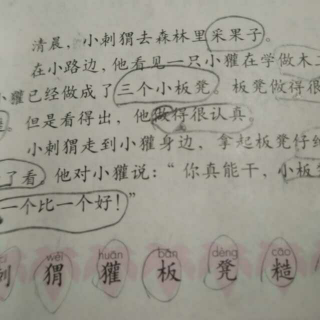 清晨，小刺猬去森林里采果子。
在小路边，他看见一只小獾在学做木
小獾已经做成了三个小板凳。板凳做得很
但是看得出，他做得很认真。
小刺猬走到小獾身边，拿起板凳仔
了看。他对小獾说：“你真能干，小板凳
一个比一个好！”
wèi huān bǎn dèng cāo
刺 猬 獾 板 凳 糙